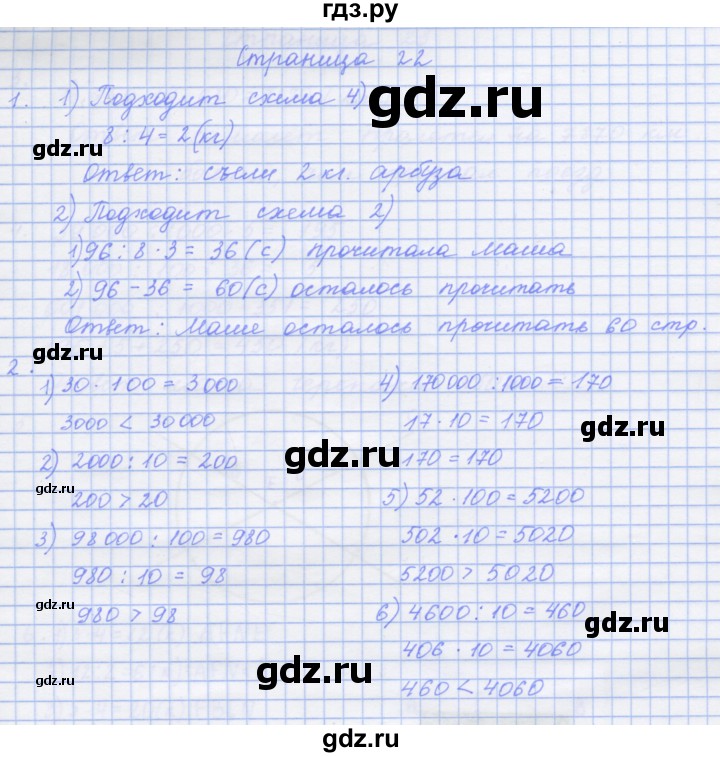 гдз.ру
Страница 22
1. 1) Подходит схема 4)
8 : 4 = 2 (кг)
Ответ: съели 2 кг. арбуза
2) Подходит схема 2)
1) 96 : 8 · 3 = 36 (с) прочитала Маша
2) 96 - 36 = 60 (с) осталось прочитать
Ответ: Маше осталось прочитать 60 стр.
2.
1) 30 · 100 = 3000
3000 < 30000
2) 2000 : 10 = 200
200 > 20
3) 98000 : 100 = 980
980 : 10 = 98
980 > 98
4) 170000 : 1000 = 170
17 · 10 = 170
170 = 170
5) 52 · 100 = 5200
502 · 10 = 5020
5200 > 5020
6) 4600 : 10 = 460
406 · 10 = 4060
460 < 4060
gdz.ru
gdz.ru
gdz.ru
gdz.ru
gdz.ru
gdz.ru
gdz.ru
gdz.ru
gdz.ru
gdz.ru
gdz.ru
gdz.ru